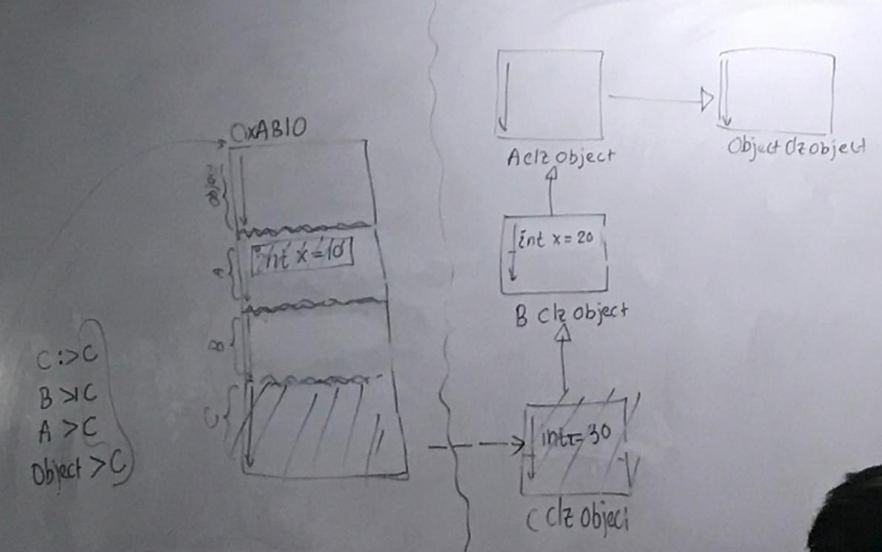 0xAB10
int x=10
A
B
C
C:>C
B>C
A>C
Object>C
A clz object
Object clz object
int x=20
B clz object
int x=30
C clz object